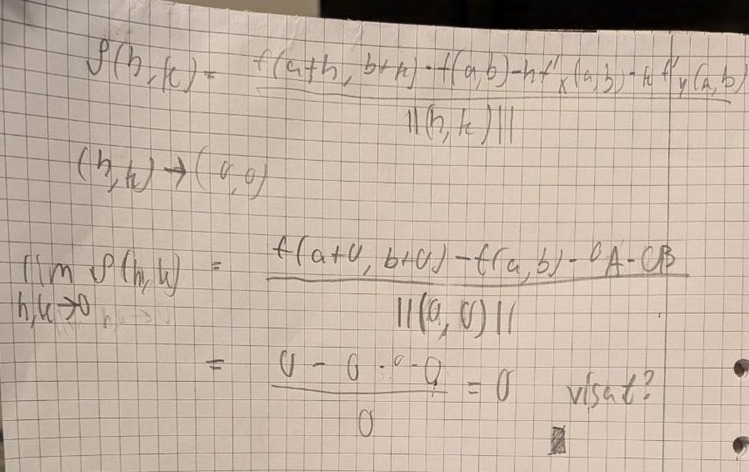 ρ(h,k) = f(a+h, b+k) - f(a,b) - hf'x(a,b) - kf'y(a,b)
||(h,k)||
(h,k) → (0,0)
lim ρ(h,k) = f(a+0, b+0) - f(a,b) - 0A - 0B
h,k→0 ||(0,0)||
= 0 - 0 · 0 - 0 = 0 visat?
0